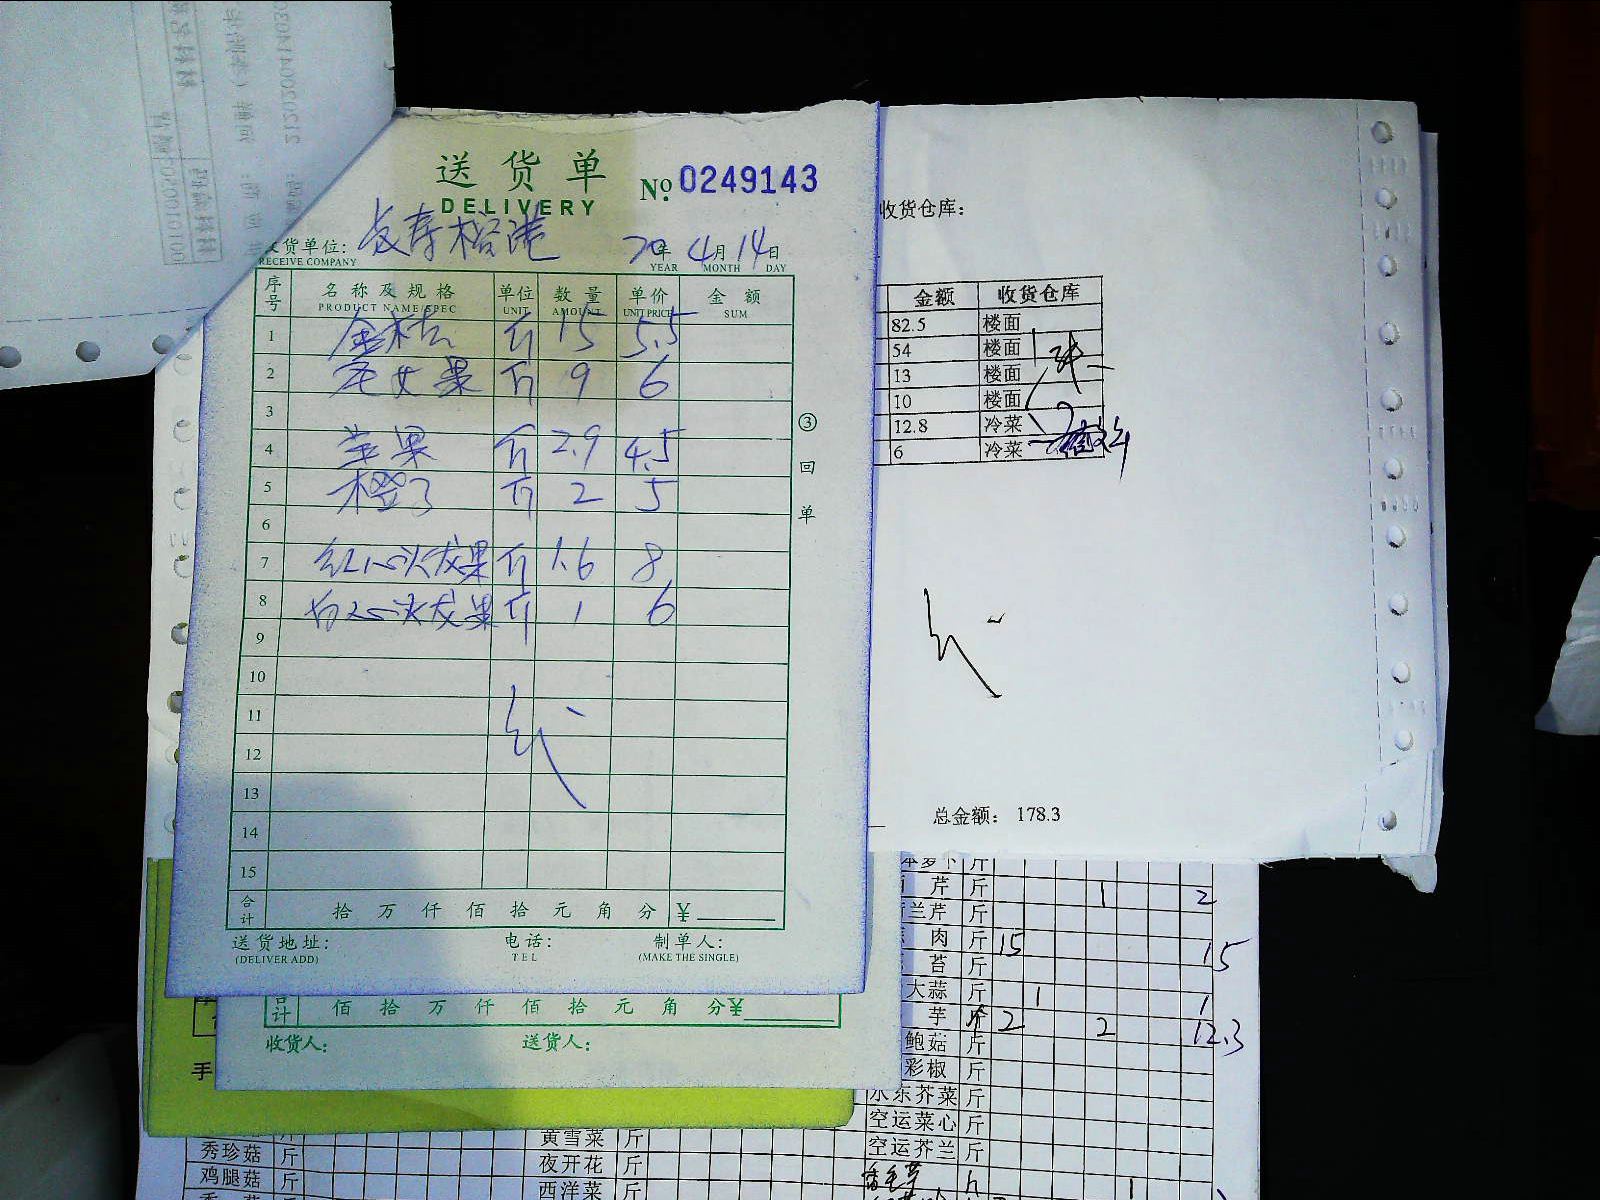 送货单
№ 0249143
DELIVERY
货单位:
RECEIVE COMPANY
20年 4月 14日
YEAR MONTH DAY
序号 名称及规格 单位 数量 单价 金额
PRODUCT NAME/SPEC UNIT AMOUNT UNIT PRICE SUM
1 金桔 斤 15 5.5
2 圣女果 斤 9 6
3
4 苹果 斤 2.9 4.5
5 橙子 斤 2 5
6
7 红心火龙果 斤 1.6 8
8 白心火龙果 斤 1 6
9
10
11
12
13
14
15
合计 拾 万 仟 佰 拾 元 角 分 ¥
③回单
送货地址: 电话: 制单人:
(DELIVER ADD) TEL (MAKE THE SINGLE)
合计 佰 拾 万 仟 佰 拾 元 角 分¥
收货人: 送货人:
手
收货仓库:
金额 收货仓库
82.5 楼面
54 楼面
13 楼面
10 楼面
12.8 冷菜
6 冷菜
总金额: 178.3
芹 斤 1 2
兰芹 斤
肉 斤 15 15
苔 斤
大蒜 斤 1 1
芋 斤 2 2 12.3
鲍菇 斤
彩椒 斤
水东芥菜 斤
空运菜心 斤
空运芥兰 斤
香毛草 斤 1
秀珍菇 斤
鸡腿菇 斤
黄雪菜 斤
夜开花 斤
西洋菜 斤